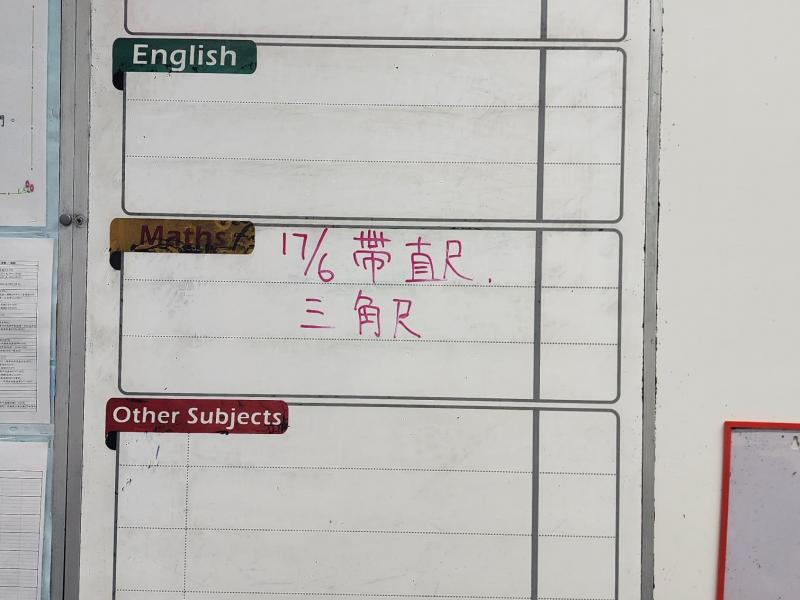 English
Maths
17/6 帶直尺.
三角尺
Other Subjects